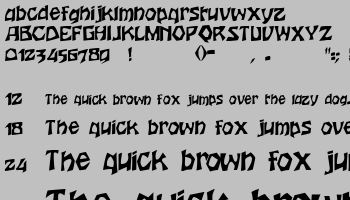 abcdefghijklmnopqrstuvwxyz
ABCDEFGHIJKLMNOPQRSTUVWXYZ
0123456780 ! ()= , . ":;
12 The quick brown fox jumps over the lazy dog.
18 The quick brown fox jumps over
24 The quick brown fox
The quick brown